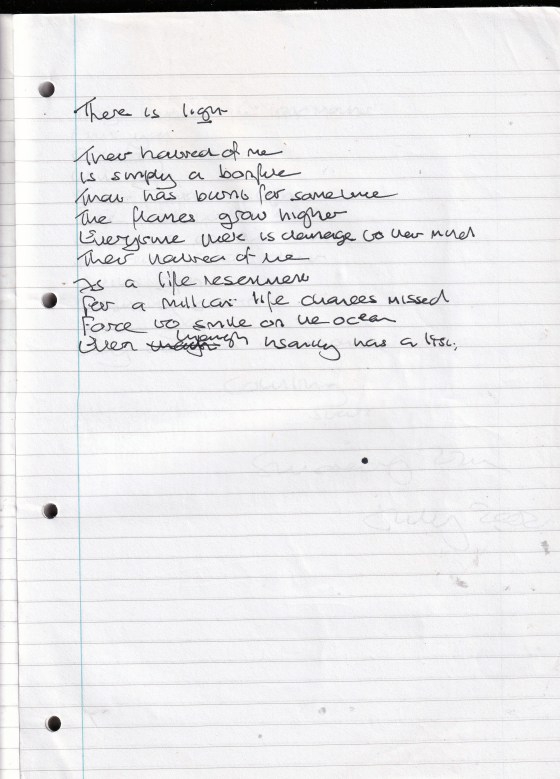 There is light
Their hatred of me
is simply a bonfire
That has burnt for sometime
The flames grow higher
Everytime there is damage to their mind
Their hatred of me
Is a life resentment
For a million life chances missed
Force to smile on the ocean
Even though insanity has a